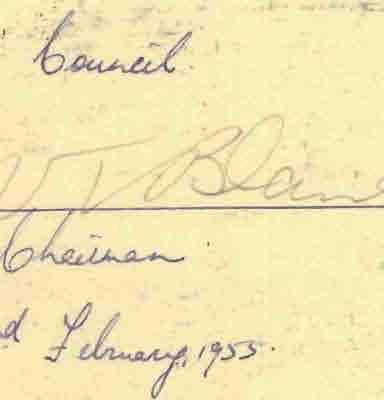 Council.
Blain
Chairman
d February, 1953.